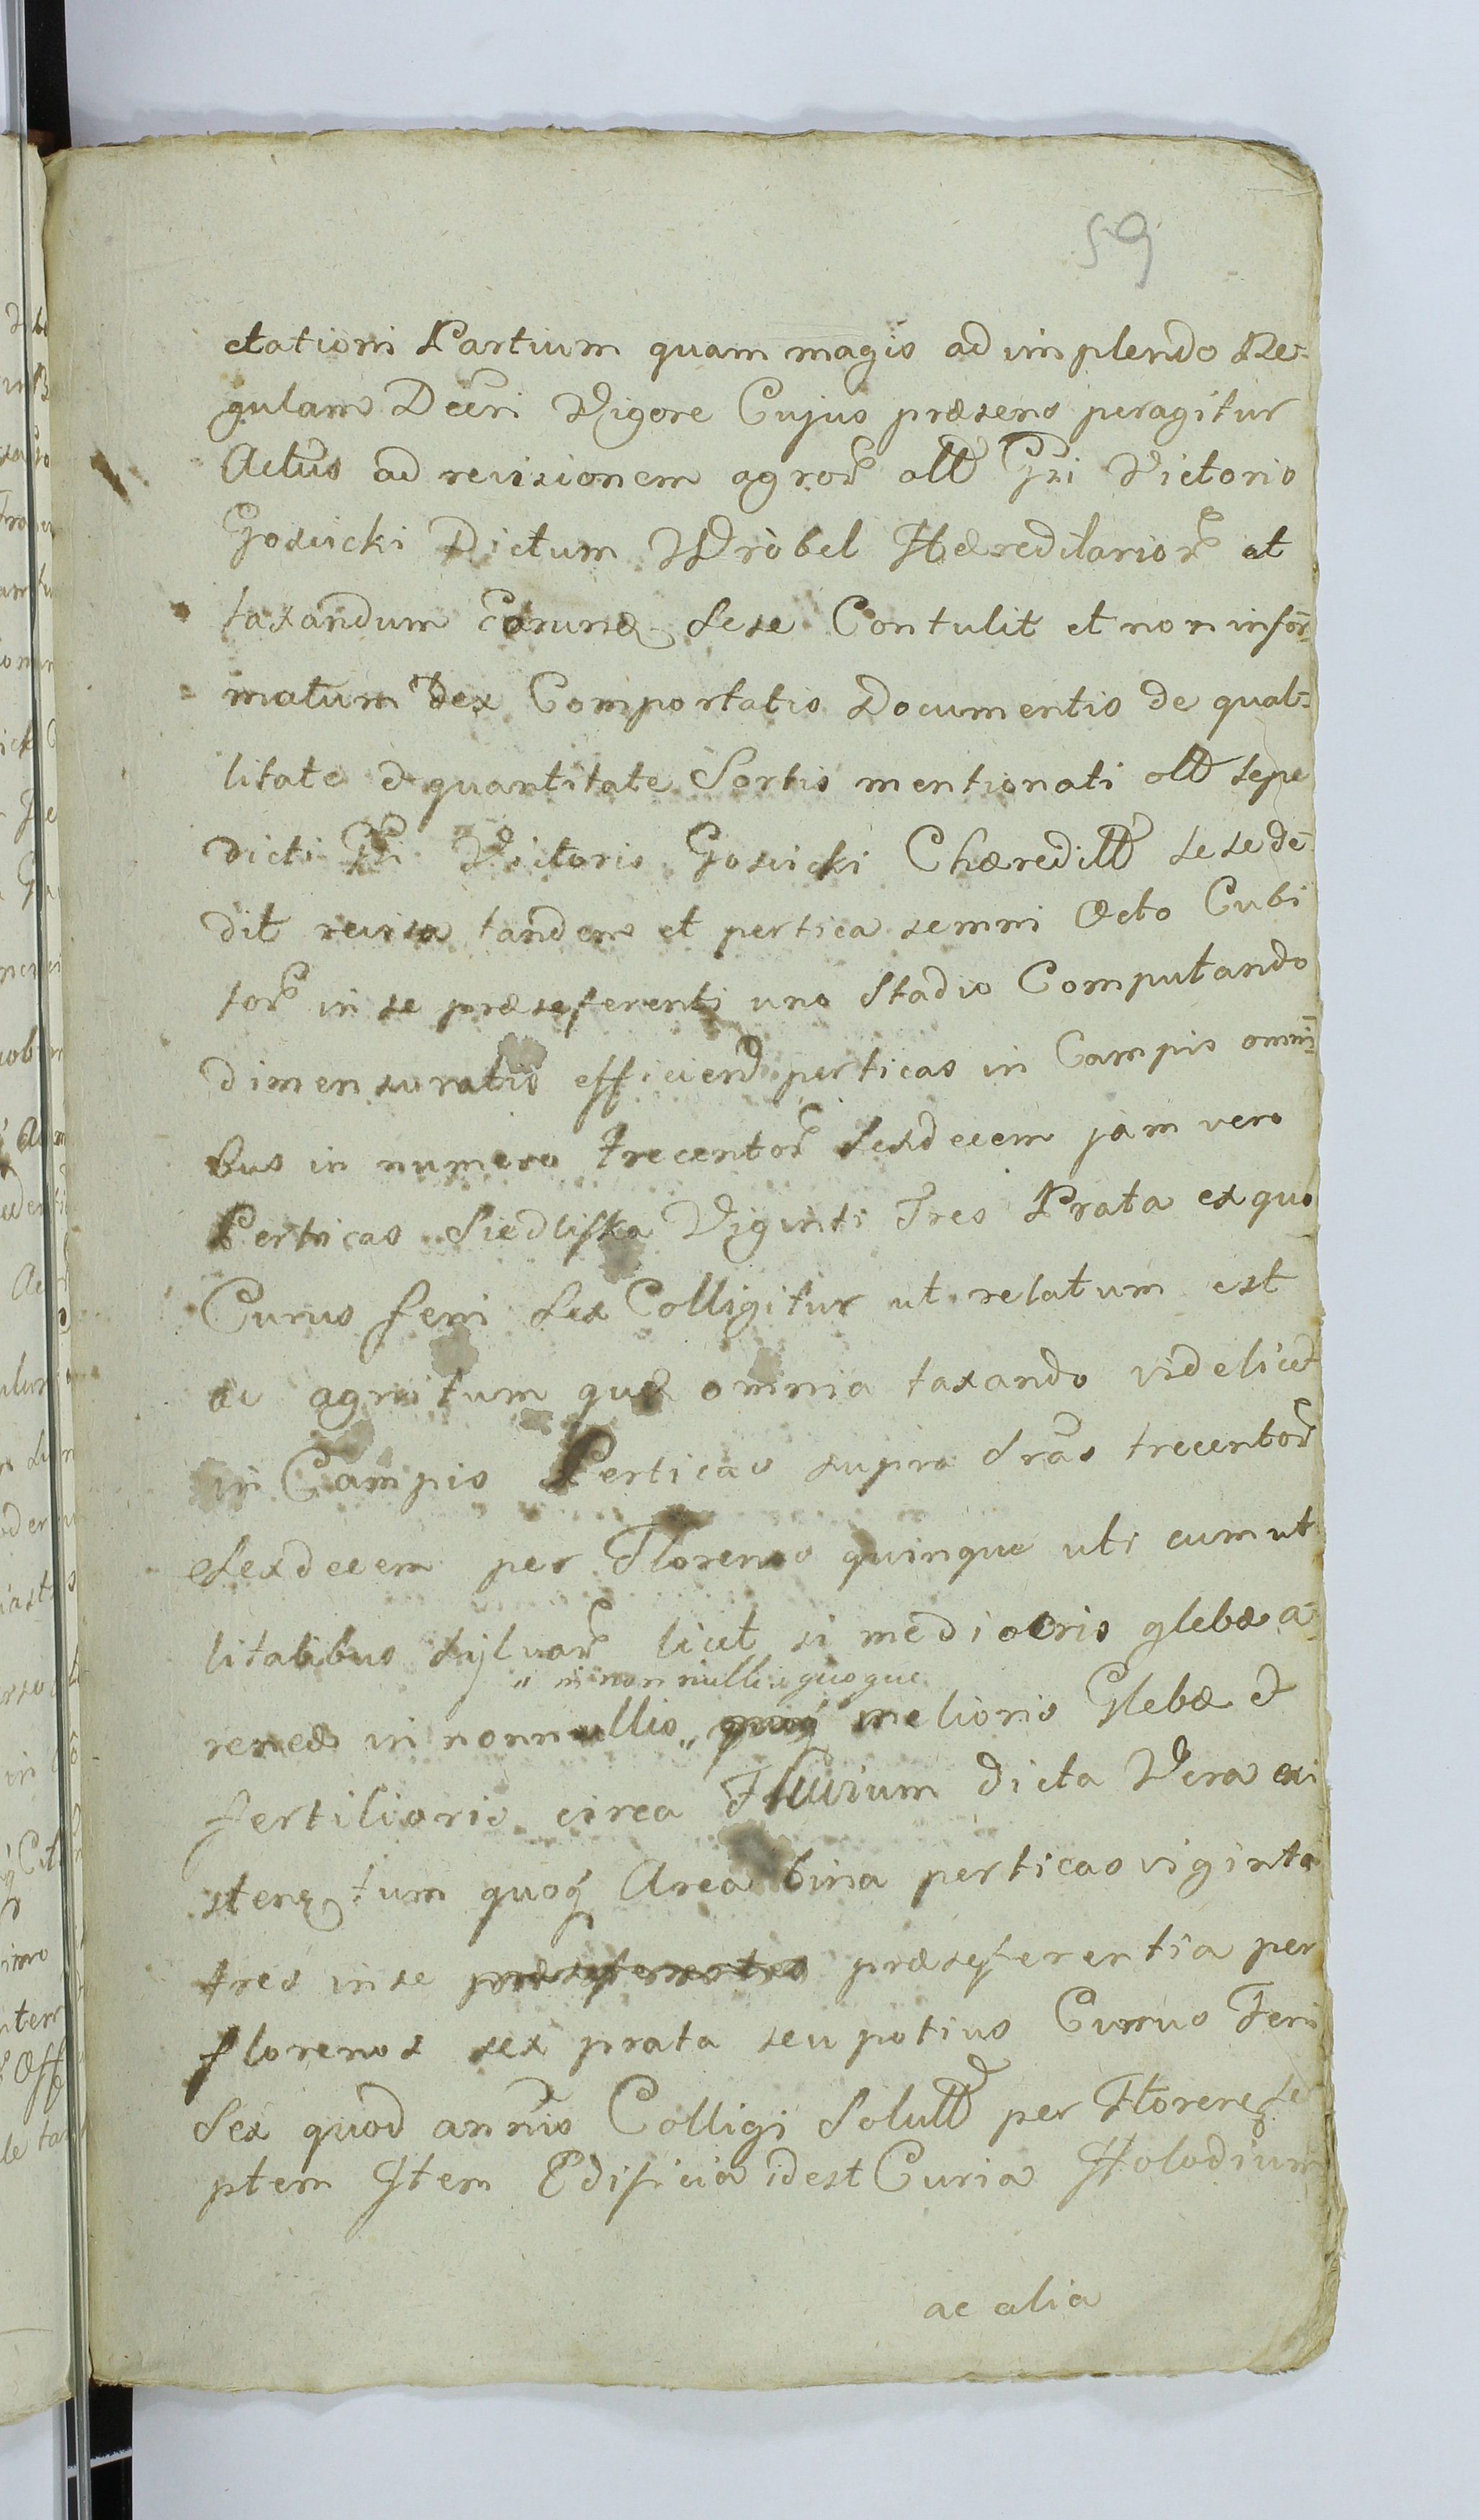 59
ctationi Partium quam magis adimplendo Re-
gulam Decri Vigore Cujus præsens peragitur
Actus ad revisionem agror olld Gsi Victoris
Gosicki Dictum Wròbel Hæreditarior et
taxandum earunq sese Contulit et non infor-
matum ex Comportatis Documentis de qual-
litate & quantitate Sortis mentionati olld sepe
dicti Gsi Victoris Gosicki Chæredilld sese de-
dit revisa tandem et pertica semni Octo Cubi
tor in se præseferenti uno Stadio Computando
dimensuratis efficiend perticas in Campis omni-
bus in numero trecentor Sexdecem jam vero
Perticas Siedliska Viginti Tres Prata ex quo
Currus feni Sex Colligitur ut relatum est
ac agnitum quæ omnia taxando videlicet
in Campis Perticas supra Sras trecentor
Sexdecem per Florenos quinque uti cum ut
litatibus sylvar licet si mediocris glebæ a-
" in non nullis quoque
reneæ in nonnullis " quoq melioris Glebæ &
fertilioris circa Fluvium dicta Wcra exi
sten tum quoq Area bina perticas viginta
tres in se præseferentes præseferentia per
florenos sex prata seu potius Currus Feni
Sex quod annis Colligi Solulld per Floren se
ptem Item Edificia id est Curia Holodium
ac alia